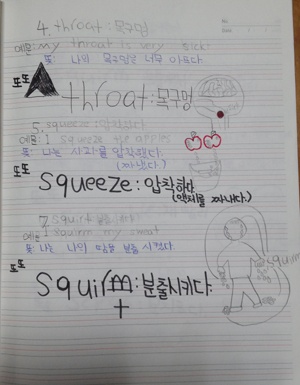 4. throat : 목구멍
예문: my throat is very sick
뜻: 나의 목구멍은 너무 아프다.
또또
throat : 목구멍
5. squeeze : 압착하다
예문: I squeeze the apples
뜻: 나는 사과를 압착했다.
(짜냈다.)
또또
squeeze : 압착하다.
(액체를 짜내다.)
7 squirt 분출시키다
예문: I squirm my sweat
뜻: 나는 나의 땀을 분출 시켰다.
또또
squirm : 분출시키다.
squirm